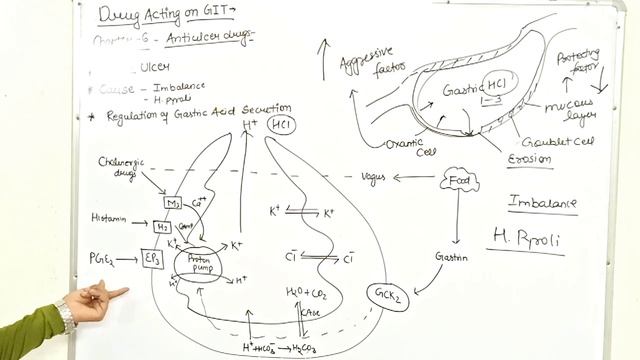 Drug Acting on GIT→
Chapter-6 - Anticulcer drugs-
Ulcer
* Cause - Imbalance
- H.pyroli
* Regulation of Gastric Acid Secretion
H+ HCl
Cholinergic
drugs
M3
Ca++
Histamin
H2
CAMP
PGE2
EP3
K+
K+
Proton
pump
H+
H+
K+
K+
Cl-
Cl-
H2O + CO2
CAse
H+ + HCO3- → H2CO3
GCK2
Vagus
Food
Gastrin
Aggressive
factor
Protecting
factor
Gastric HCl
1-3
mucous
layer
Oxantic
Cell
Goublet Cell
Erosion
Imbalance
H. Pyroli